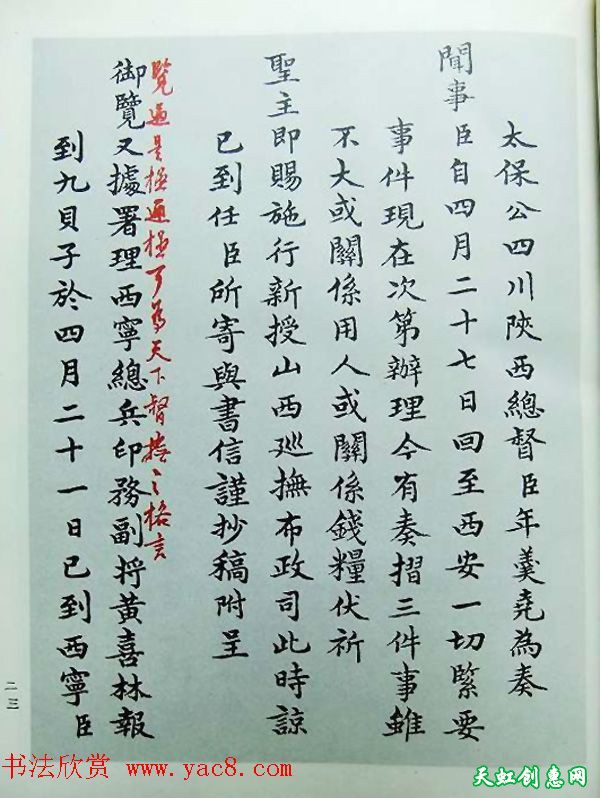 太保公四川陝西總督臣年羹堯為奏
聞事臣自四月二十七日回至西安一切緊要
事件現在次第辦理今有奏摺三件事雖
不大或關係用人或關係錢糧伏祈
聖主即賜施行新授山西巡撫布政司此時諒
已到任臣所寄與書信謹抄稿附呈
覽過是極通極了為天下督撫之格言
御覽又據署理西寧總兵印務副将黃喜林報
到九貝子於四月二十一日已到西寧臣
二三
书法欣赏 www.yac8.com
天虹创惠网